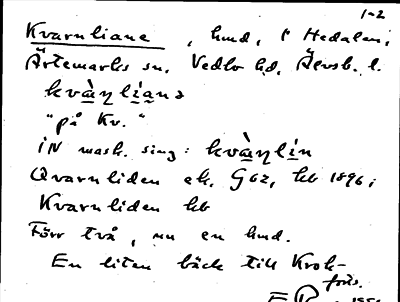 1-2
Kvarnliane, hmd, i Hedalen i
Ärtemarks sn, Vedbo hd, Älvsb. l.
kvàɳlianə
"på Kv."
iN mask. sing: kvàɳlin
Qvarnliden ek. G62, kb 1896;
Kvarnliden kb
Förr två, nu en hmd.
En liten bäck till Krok-
fors.